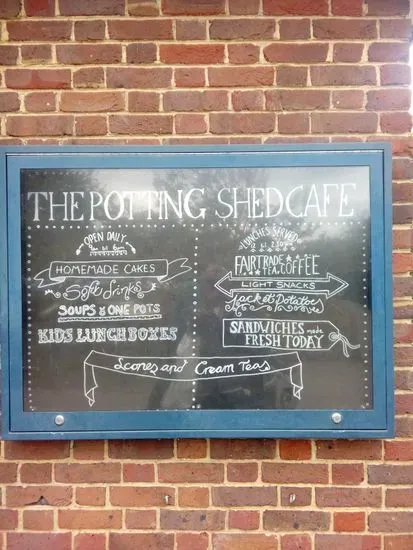 THE POTTING SHED CAFE
OPEN DAILY
HOMEMADE CAKES
Soft drinks
SOUPS & ONE POTS
KIDS LUNCH BOXES
LUNCHES SERVED
12 til 2:30pm
FAIRTRADE
TEA & COFFEE
LIGHT SNACKS
Jacket Potatoes
SANDWICHES made
FRESH TODAY
Scones and Cream Teas